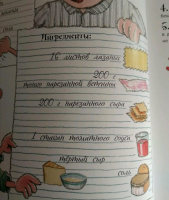 Ингредиенты:
15 листов лазаньи
200 г
тонко нарезанной ветчины
200 г нарезанного сыра
1 стакан томатного соуса
тёртый сыр
соль
4.
5.